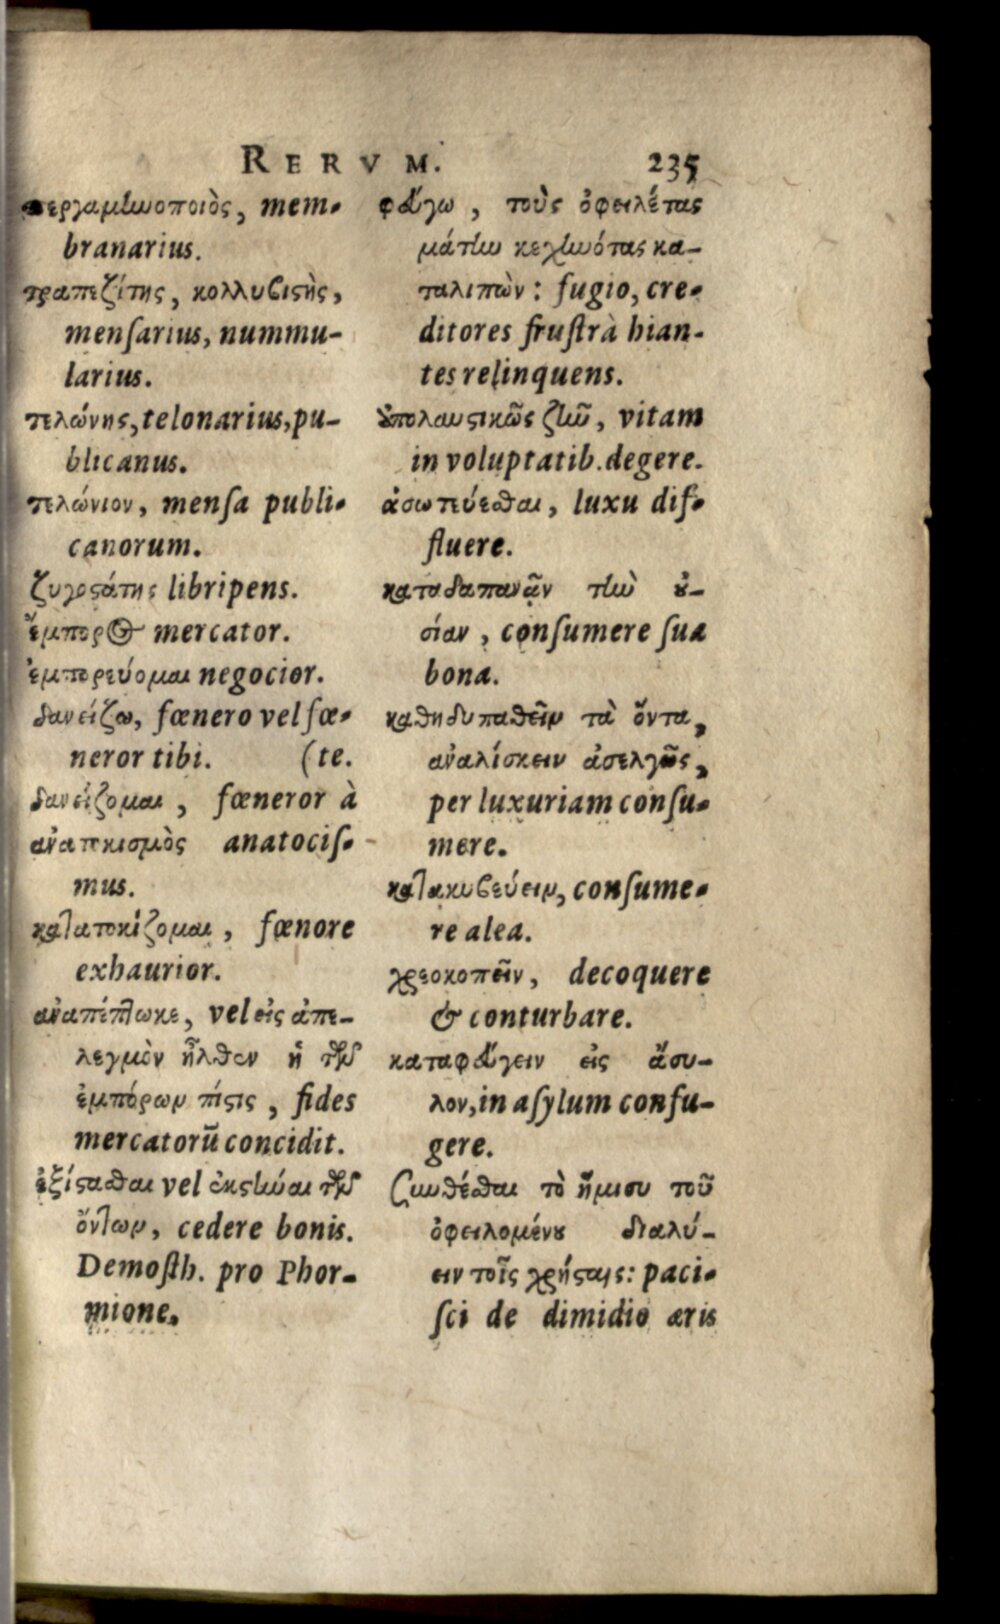 RERVM. 235
περγαμηνοποιὸς, mem-
branarius.
τραπεζίτης, κολλυβιστὴς,
menſarius, nummu-
larius.
τελώνης, telonarius, pu-
blicanus.
τελώνιον, menſa publi-
canorum.
ζυγοστάτης libripens.
ἔμπορος mercator.
ἐμπορεύομαι negocior.
δανείζω, fœnero vel fœ-
neror tibi. (te.
δανείζομαι, fœneror à
ἀνατοκισμὸς anatociſ-
mus.
κατατοκίζομαι, fœnore
exhaurior.
ἀναπέπτωκε, vel εἰς ἀπε-
λεγμὸν ἦλθεν ἡ τῶν
ἐμπόρων πίστις, fides
mercatorū concidit.
ἐξίστασθαι vel ἐκστῆναι τῶν
ὄντων, cedere bonis.
Demoſth. pro Phor-
mione.
φεύγω, τοὺς ὀφειλέτας
μάτην κεχηνότας κα-
ταλιπὼν: fugio, cre-
ditores fruſtrà hian-
tes relinquens.
ἀπολαυστικῶς ζῆν, vitam
in voluptatib. degere.
ἀσωτεύεσθαι, luxu dif-
fluere.
καταδαπανᾷν τὴν οὐ-
σίαν, conſumere ſua
bona.
καθηδυπαθεῖν τὰ ὄντα,
ἀναλίσκειν ἀσελγῶς,
per luxuriam conſu-
mere.
κατακυβεύειν, conſume-
re alea.
χρεοκοπεῖν, decoquere
& conturbare.
καταφεύγειν εἰς ἄσυ-
λον, in aſylum confu-
gere.
συνθέσθαι τὸ ἥμισυ τοῦ
ὀφειλομένου διαλύ-
ειν τοῖς χρήσταις: paci-
ſci de dimidio æris